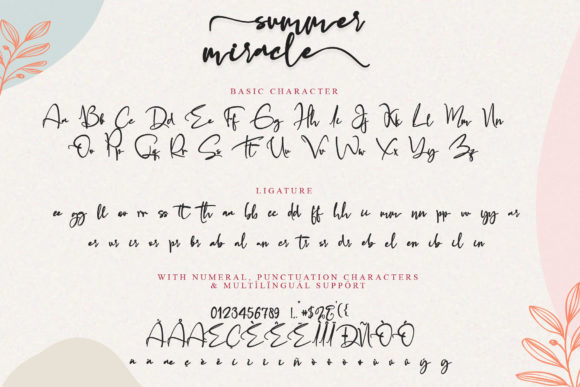 summer
miracle
BASIC CHARACTER
Aa Bb Cc Dd Ee Ff Gg Hh Ii Jj Kk Ll Mm Nn
Oo Pp Qq Rr Ss Tt Uu Vv Ww Xx Yy Zz
LIGATURE
ee gg ll oo rr ss tt th aa bb cc dd ff hh ii mm nn pp vv yy ar
er ur ir or pr br ab al an cr tr sr dr eb el en ib il in
WITH NUMERAL, PUNCTUATION CHARACTERS
& MULTILINGUAL SUPPORT
0123456789